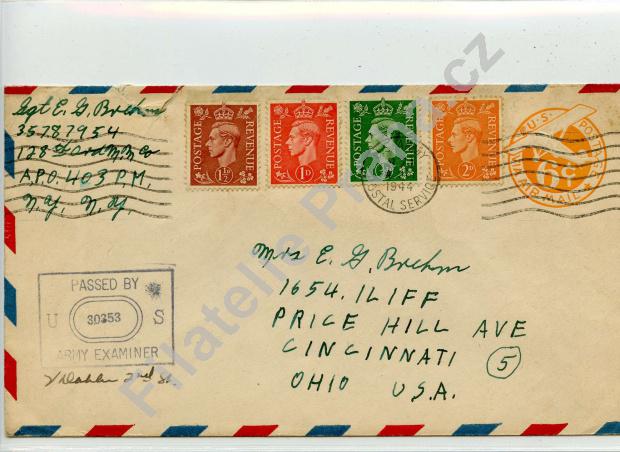 Sgt E. G. Brehm
35787954
128th Ord M.M. Co
A.P.O. 403 P.M.
N.Y. N.Y.
POSTAGE REVENUE
1½D
POSTAGE REVENUE
1D
POSTAGE REVENUE
POSTAGE REVENUE
2D
1944
POSTAL SERVICE
U.S. POSTAGE
6¢
VIA AIR MAIL
Mrs E. G. Brehm
1654. ILIFF
PRICE HILL AVE
CINCINNATI 5
OHIO U.S.A.
PASSED BY
U 30353 S
ARMY EXAMINER
2nd Lt.
Filatelie Praha.cz